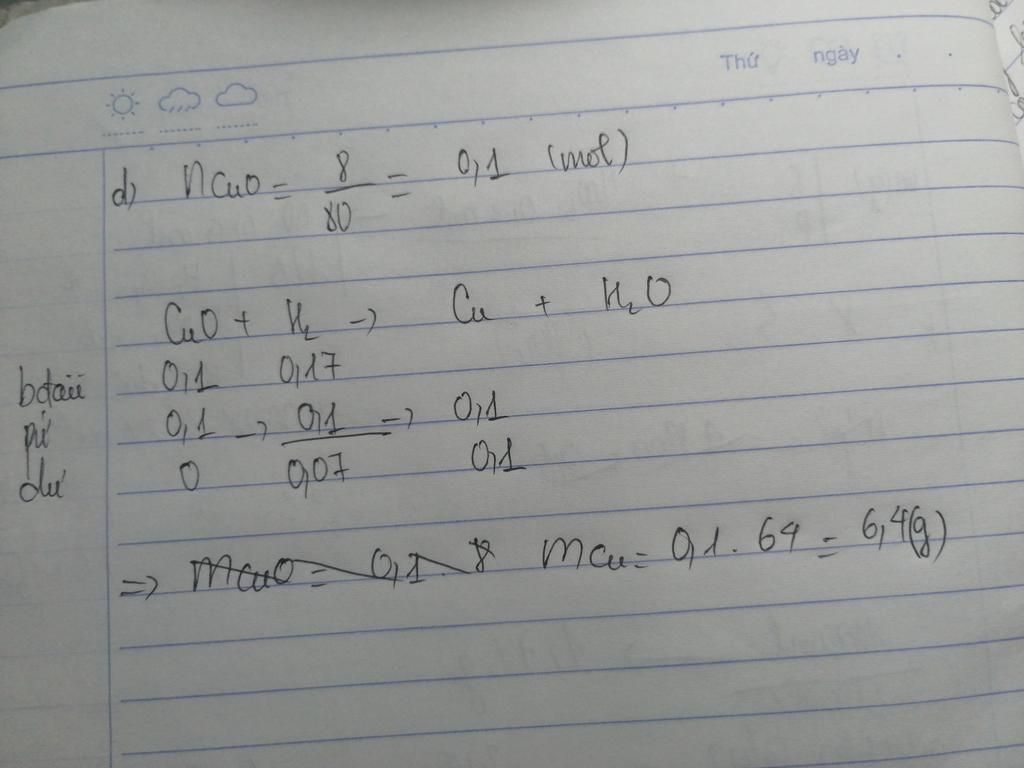 Thứ ngày . .
d) nCuO = 8/80 = 0,1 (mol)
CuO + H₂ → Cu + H₂O
bđầu 0,1 0,17
pứ 0,1 → 0,1 → 0,1
dư 0 0,07 0,1
=> mCuO = 0,1 . 8 mCu = 0,1 . 64 = 6,4(g)